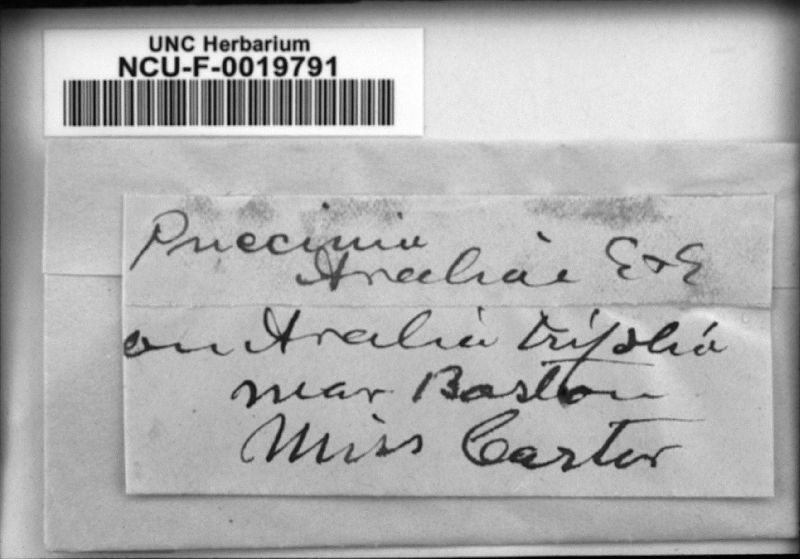 UNC Herbarium
NCU-F-0019791
Puccinia
Araliae E & E
on Aralia trifolia
near Boston
Miss Carter